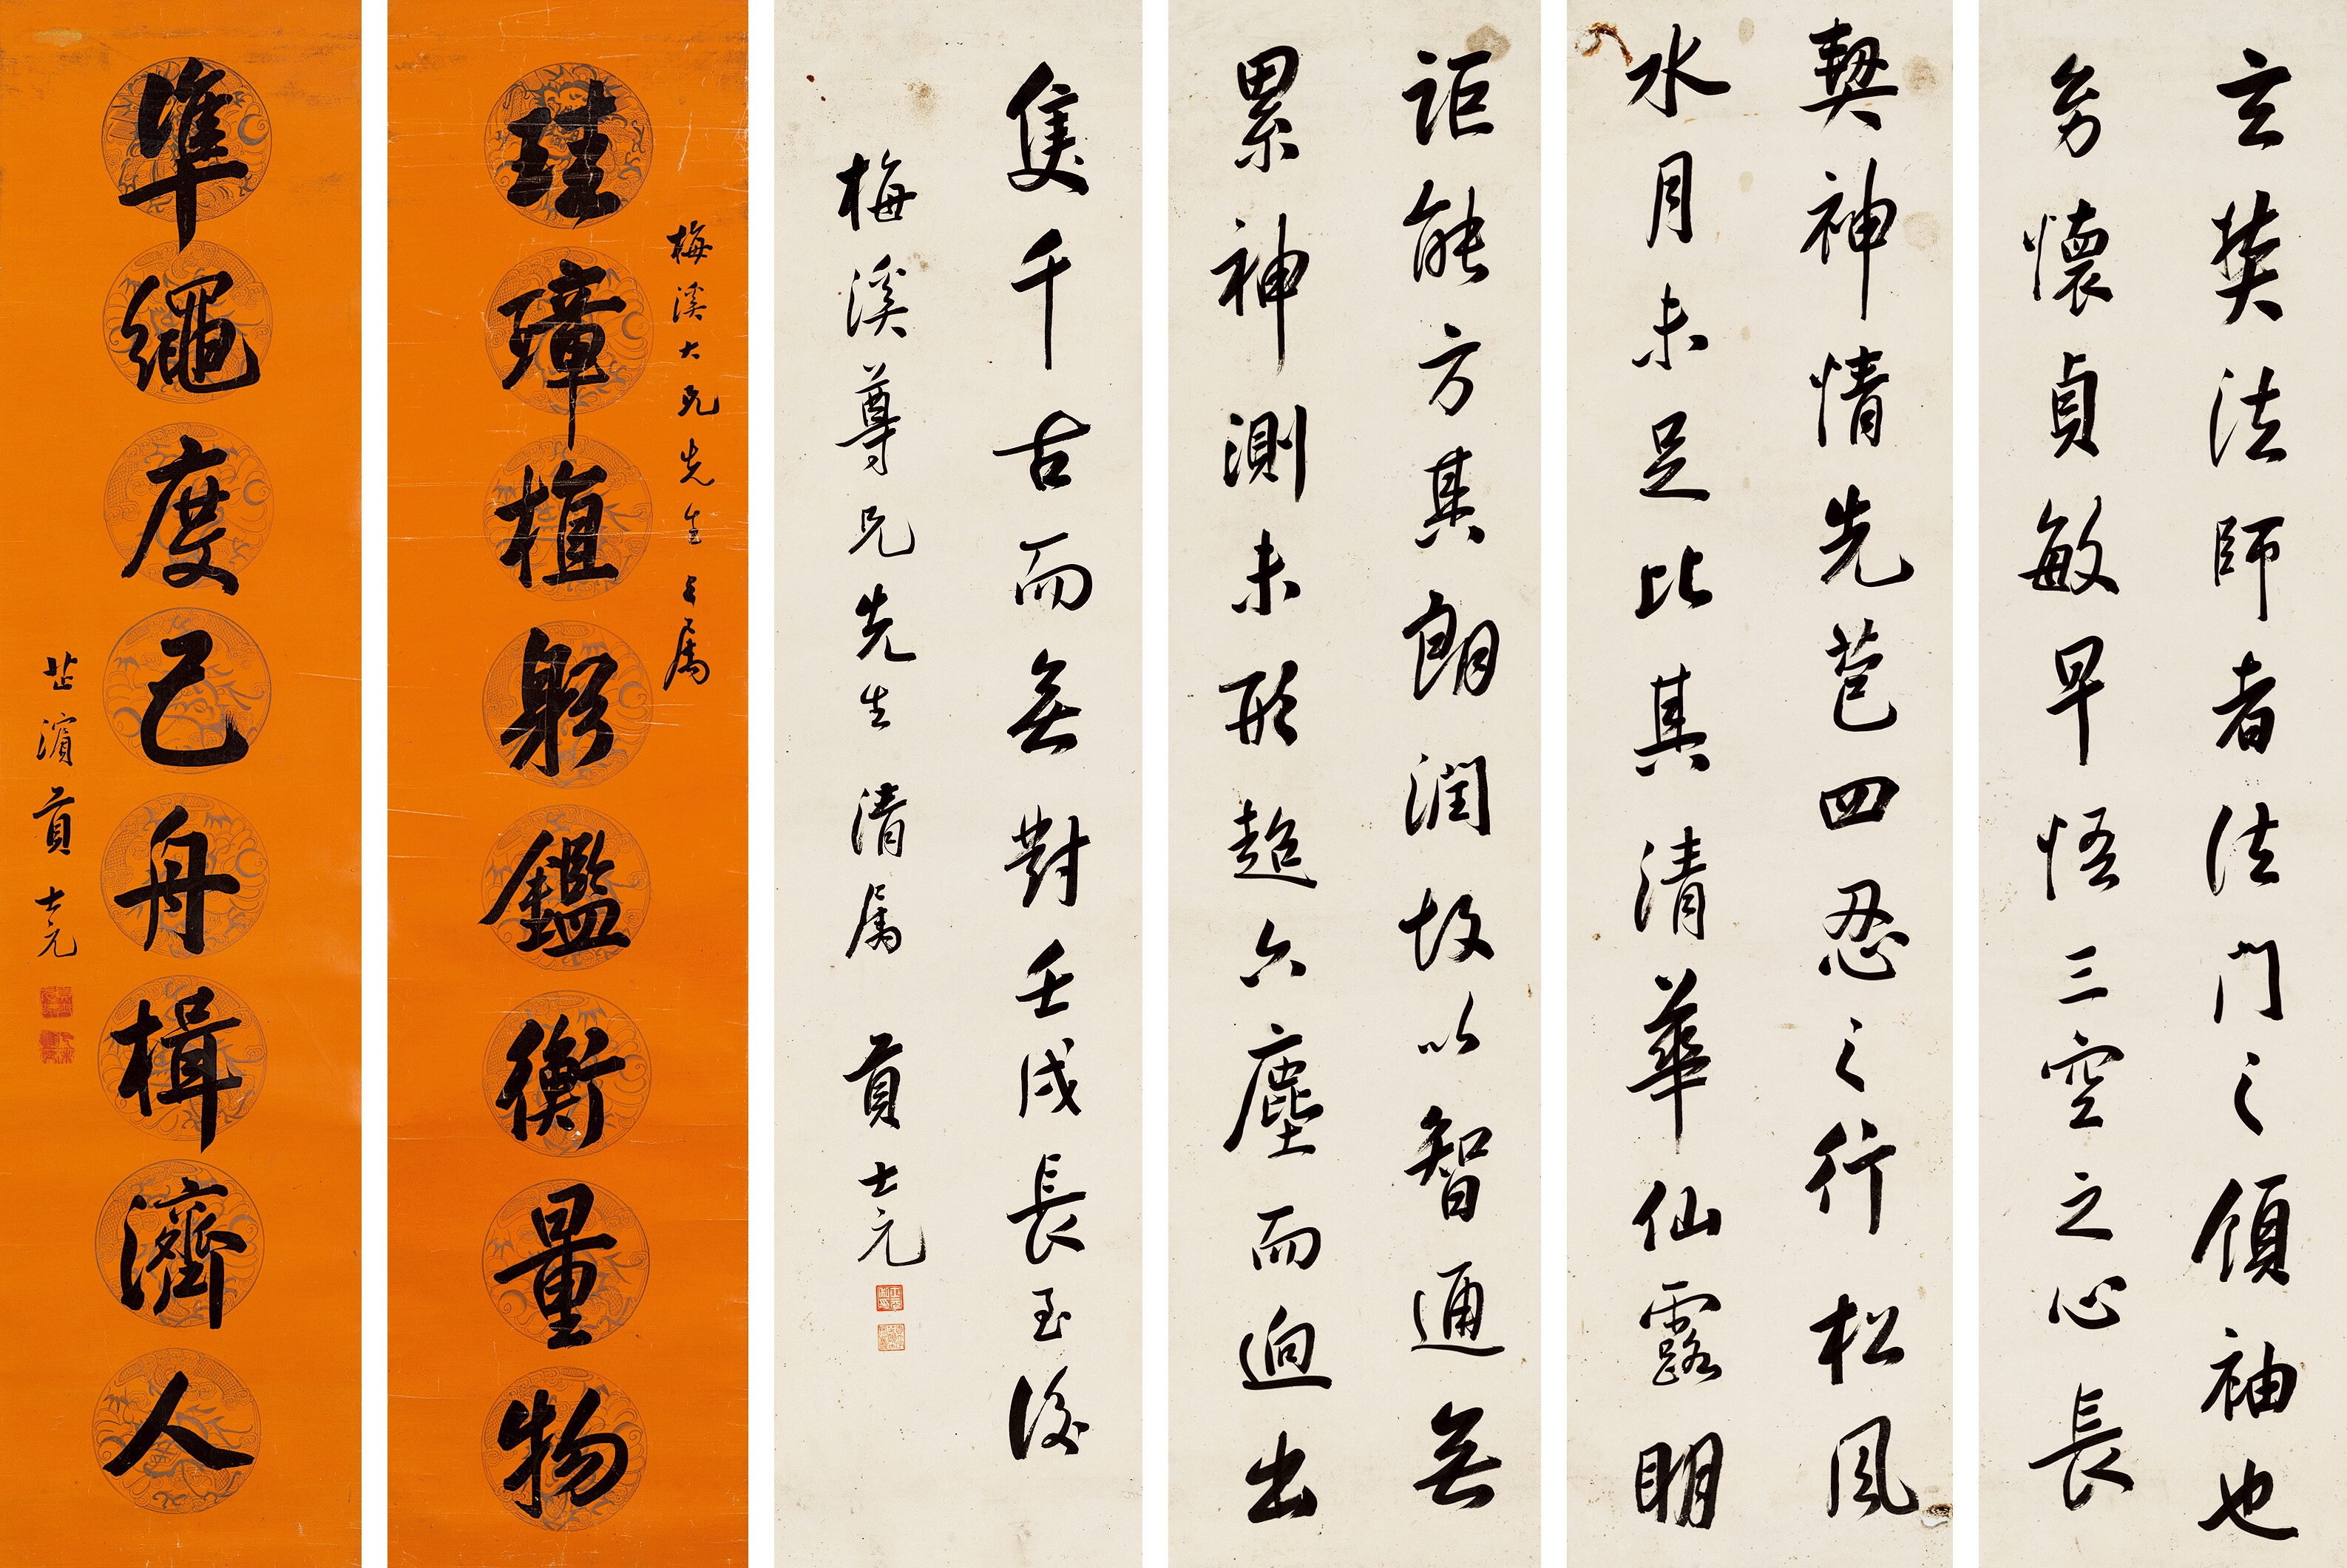 玄奘法師者法門之領袖也
幼懷貞敏早悟三空之心長
契神情先苞四忍之行松風
水月未足比其清華仙露明
詎能方其朗潤故以智通無
累神測未形超六塵而迥出
隻千古而無對壬戌長至後
梅溪尊兄先生清属 貢士元
梅溪大兄先生正属
珪璋植躬鑑衡量物
準繩度己舟楫濟人
芷濱貢士元